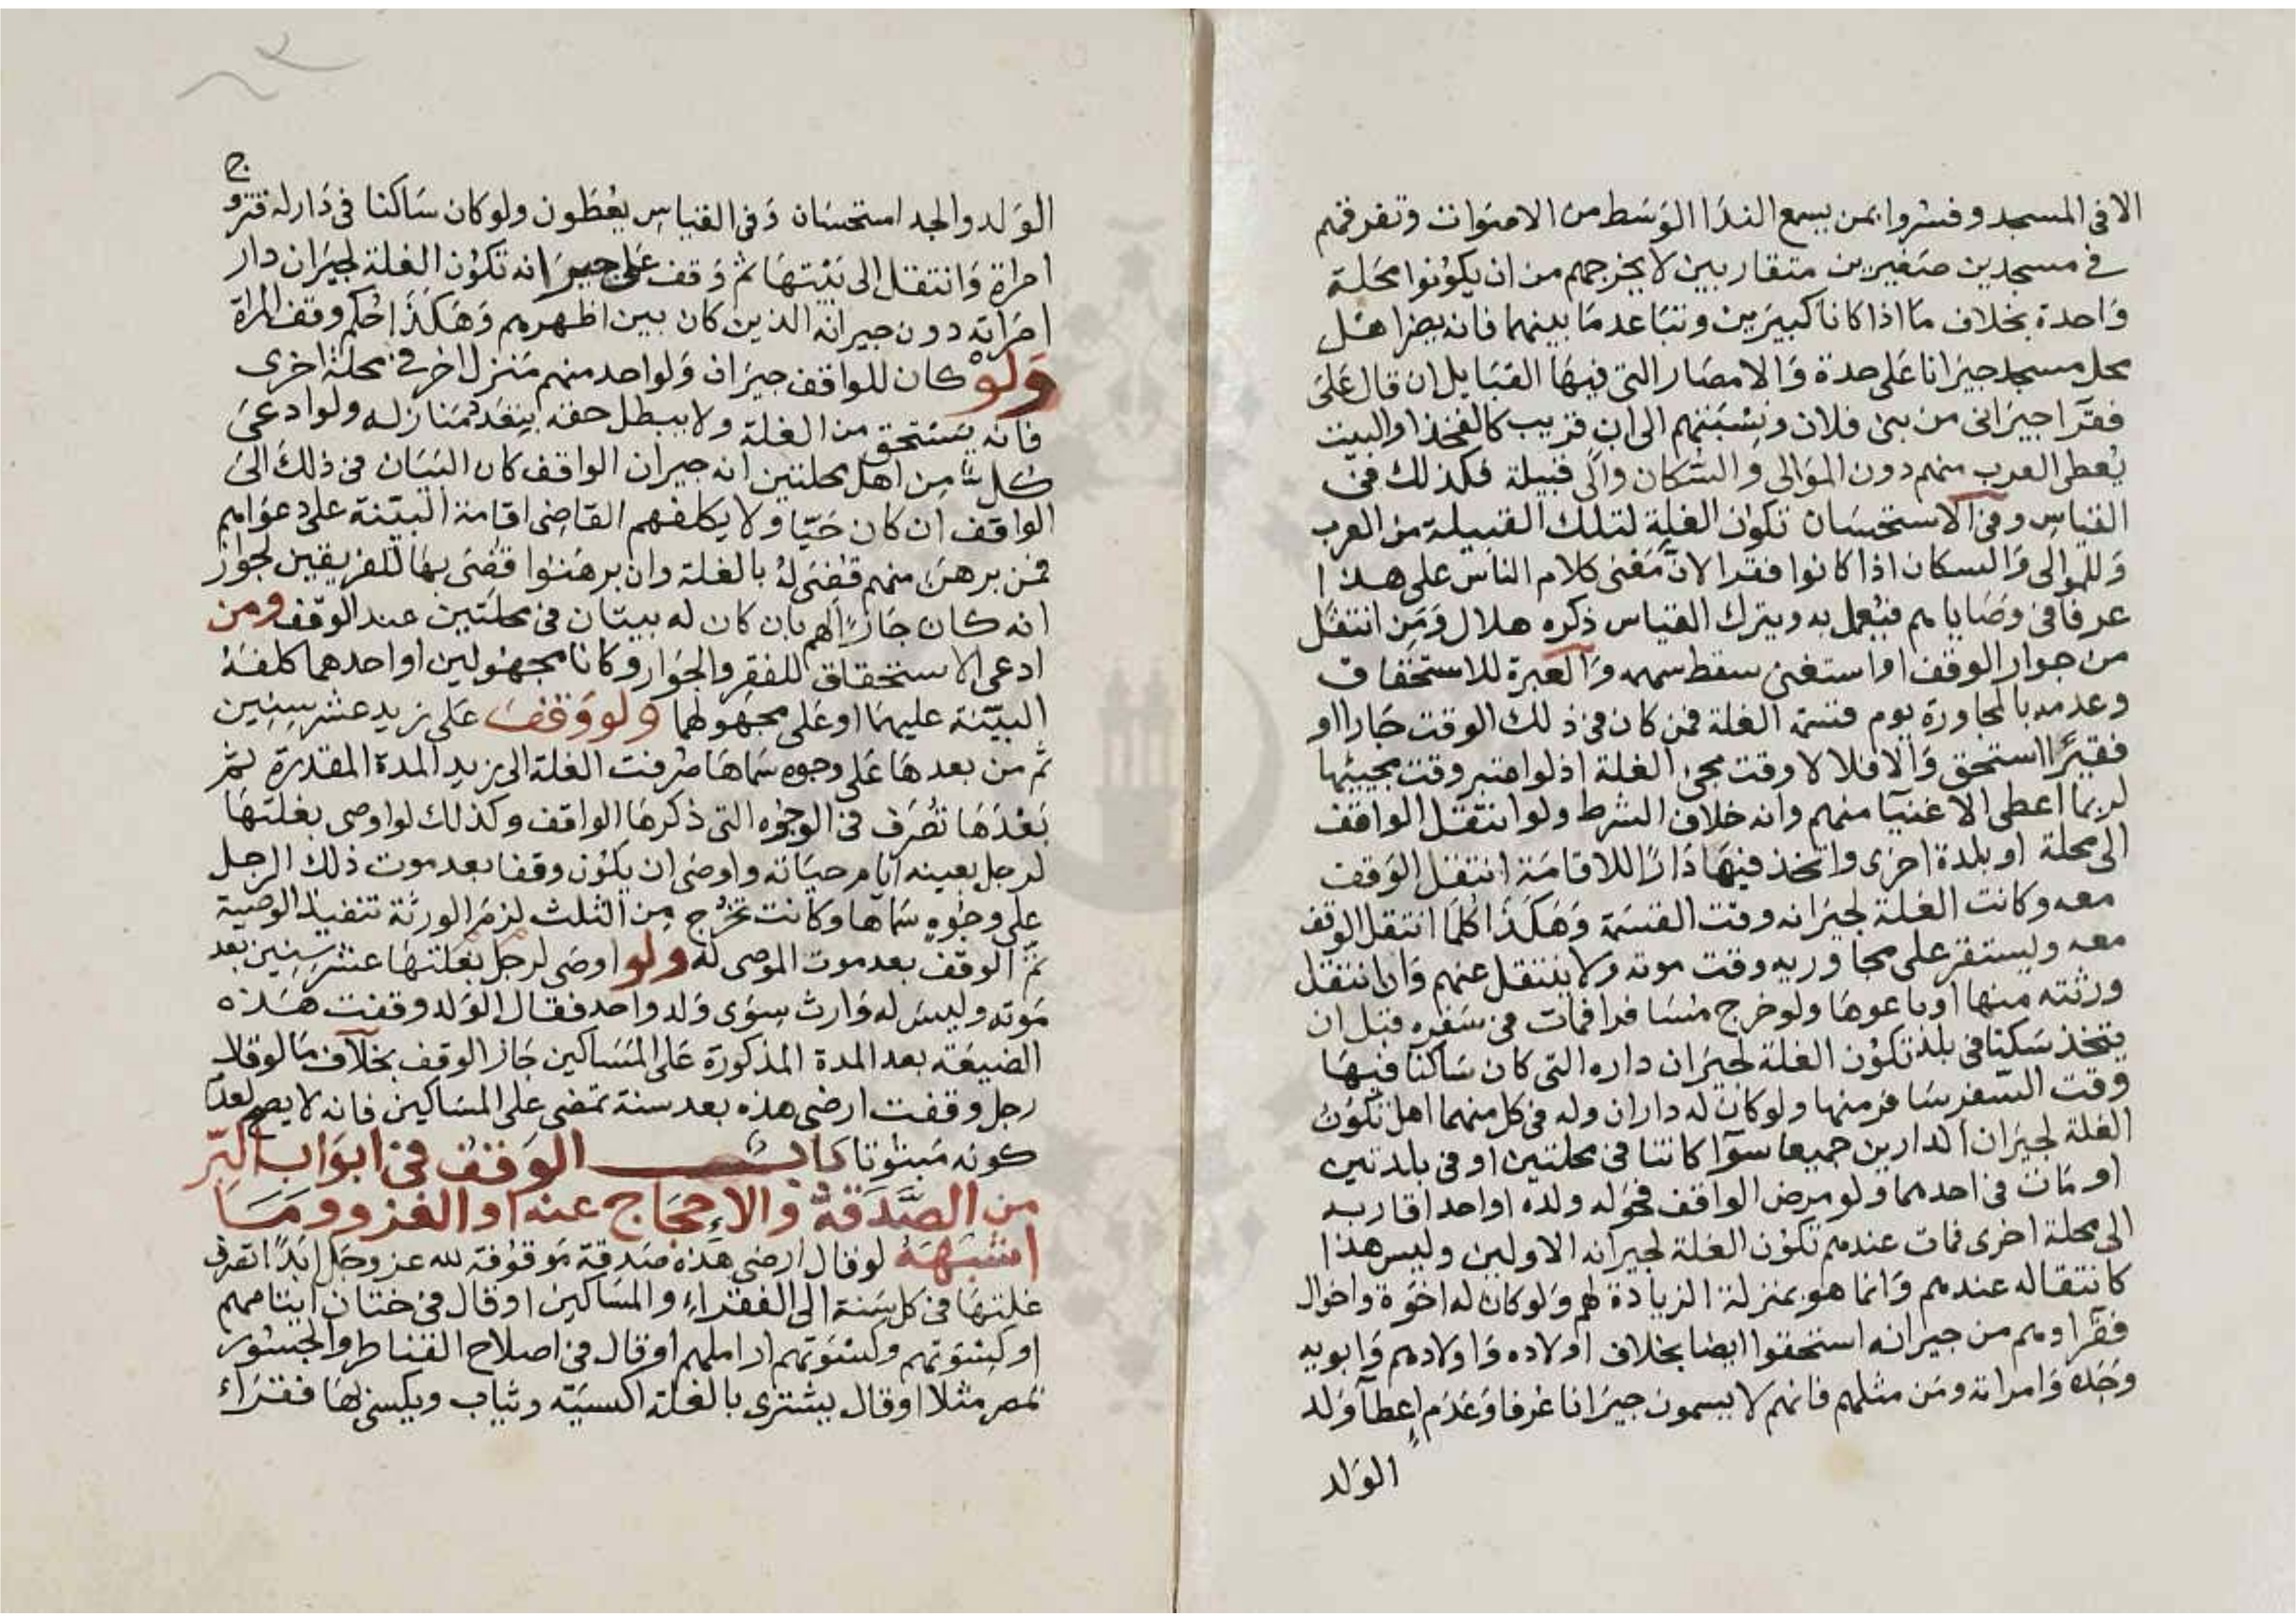 الا في المسجد وفسروا بمن يسمع الندا الوسط من الاصوات وتفرقهم
في مسجدين صغيرين متقاربين لا يخرجهم من ان يكونوا محلة
واحدة بخلاف ما اذا كانا كبيرين وتباعد ما بينهما فانه يصير اهل
كل مسجد جيرانا على حدة والامصار التي فيها القبايل ان قال على
فقرآ جيراني من بني فلان ونسبتهم الى اب قريب كالفخذ او البيت
يعطى العرب منهم دون الموالي والسكان والى قبيلة فكذلك في
القياس وفي الاستحسان تكون الغلة لتلك القبيلة من العرب
وللموالى والسكان اذا كانوا فقرا لان معنى كلام الناس على هذا
عرفا في وصاياهم فيعمل به ويترك القياس ذكره هلال ومن انتقل
من جوار الوقف او استغنى سقط سهمه والعبرة للاستحقاق
وعدمه بالمجاورة يوم قسمة الغلة فمن كان في ذلك الوقت جارا او
فقيرًا استحق والا فلا لا وقت مجى الغلة اذ لو اعتبر وقت مجيئها
لربما اعطى الاغنيآ منهم وانه خلاف الشرط ولو انتقل الواقف
الى محلة او بلدة اخرى واتخذ فيها دارًا للاقامة انتقل الوقف
معه وكانت الغلة لجيرانه وقت القسمة وهكذا كلما انتقل الوقف
معه ويستقر على مجاوريه وقت موته ولا ينتقل عنهم وان انتقل
ورثته منها او باعوها ولو خرج مسافرا فمات في سفره قبل ان
يتخذ سكنا في بلد تكون الغلة لجيران داره التي كان ساكنا فيها
وقت السفر سافر منها ولو كان له داران وله في كل منهما اهل تكون
الغلة لجيران الدارين جميعا سوآ كانتا في محلتين او في بلدتين
او مات في احدهما ولو مرض الواقف فحوله ولده او احد اقاربه
الى محلة اخرى فمات عندهم تكون الغلة لجيرانه الاولين وليس هذا
كانتقاله عندهم وانما هو بمنزلة الزيادة لهم ولو كان له اخوة واخوال
فقرآ وهم من جيرانه استحقوا ايضا بخلاف اولاده واولادهم وابويه
وجده وامراته ومن مثلهم فانهم لا يسمون جيرانا عرفا وعدم إعطآ ولد
الولد
الولد والجد استحسان وفي القياس يعطون ولو كان ساكنا في دار له فتزوج
امراة وانتقل الى بيتها ثم وقف على جيرانه تكون الغلة لجيران دار
امراته دون جيرانه الذين كان بين اظهرهم وهكذا حكم وقف المراة
ولو كان للواقف جيران ولواحد منهم منزل اخر في محلة اخرى
فانه يستحق من الغلة ولا يبطل حقه بتعدد منازله ولو ادعى
كل من اهل محلتين انه جيران الواقف كان البيان في ذلك الى
الواقف ان كان حيّا ولا يكلفهم القاضى اقامة البيّنة على دعواهم
فمن برهن منهم قضى له بالغلة وان برهنوا قضى بها للفريقين لجواز
انه كان جارًا لهم بان كان له بيتان في محلتين عند الوقف ومن
ادعى الاستحقاق للفقر والجوار وكانا مجهولين او احدهما كلفه
البيّنة عليهما او على مجهولهما ولو وقف على زيد عشر سنين
ثم من بعدها على وجوه سماها صرفت الغلة الى زيد المدة المقدرة ثم
بعدها تصرف في الوجوه التي ذكرها الواقف وكذلك لو اوصى بغلتها
لرجل بعينه ايام حياته واوصى ان يكون وقفا بعد موت ذلك الرجل
على وجوه سماها وكانت تخرج من الثلث لزم الورثة تنفيذ الوصية
ثم الوقف بعد موت الموصى له ولو اوصى لرجل بغلتها عشر سنين بعد
موته وليس له وارث سوى ولد واحد فقال الولد وقفت هذه
الضيعة بعد المدة المذكورة على المساكين جاز الوقف بخلاف ما لو قال
رجل وقفت ارضى هذه بعد سنة تمضى على المساكين فانه لا يصح لعدم
كونه مبتوتا باب الوقف في ابواب البرّ
من الصدقة والاحجاج عنه او الغزو وما
اشبهه لو قال ارضى هذه صدقة موقوفة لله عز وجل ابدًا تصرف
غلتها في كل سنة الى الفقراء والمساكين او قال في ختان ايتامهم
او كسوتهم وكسوتهم اراملهم او قال في اصلاح القناطر والجسور
بمصر مثلا او قال يشترى بالغلة اكسية وثياب ويكسى لها فقراء